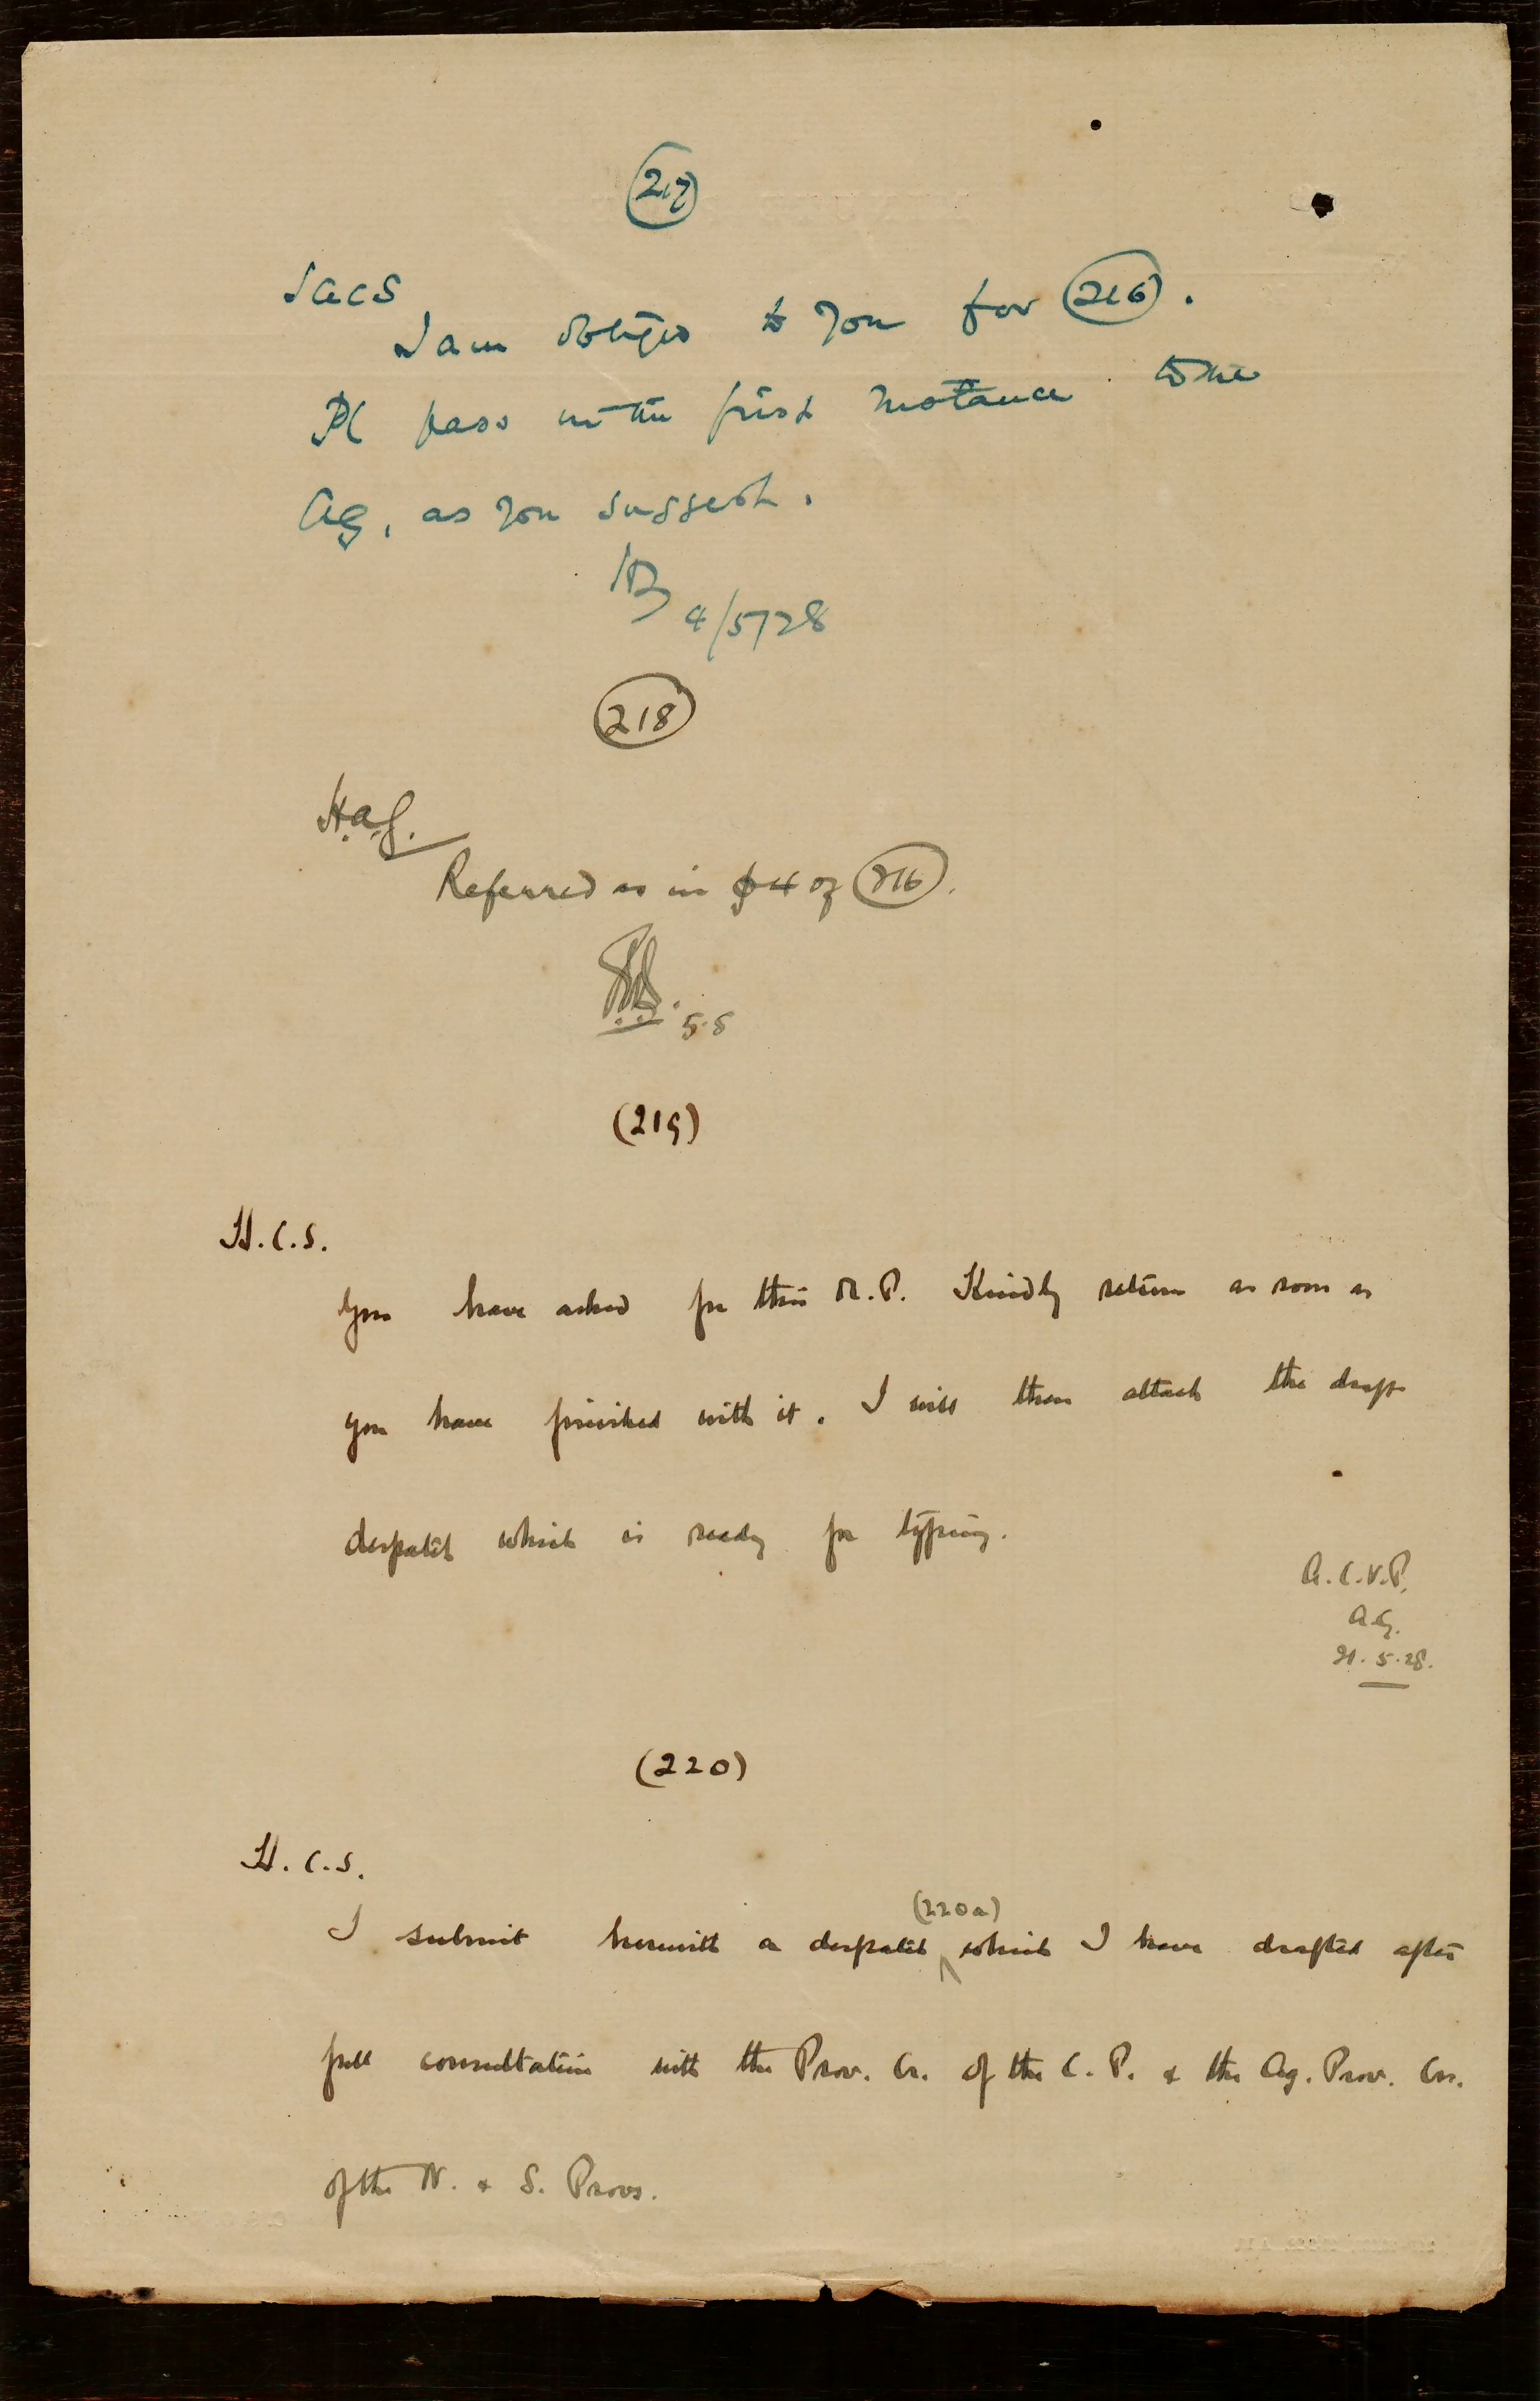 (217)
SACS
I am obliged to you for (216).
Pl pass in the first instance to the
AG, as you suggest.
4/5/28
(218)
H.A.G.
Referred as in § 4 of (216).
5.5
(219)
H.C.S.
You have asked for this M.P. Kindly return as soon as
you have finished with it. I will then attach the draft
despatch which is ready for typing.
A.C.V.P.
A.G.
21.5.28.
(220)
H.C.S.
(220a)
I submit herewith a despatch which I have drafted after
full consultation with the Prov. Cr. of the C.P. & the Ag. Prov. Cr.
of the N. & S. Provs.